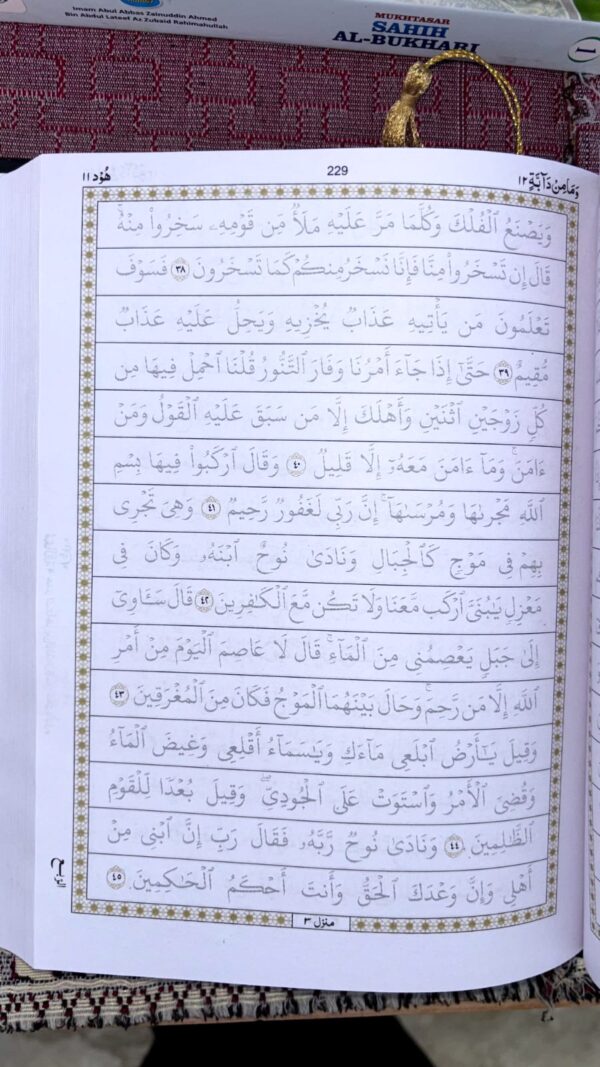 Imam Abul Abbas Zainuddin Ahmed
Bin Abdul Lateef Az Zubaid Rahimahullah
MUKHTASAR
SAHIH
AL-BUKHARI
1
وَمَا مِن دَآبَّةٍ ١٢
229
هُوْد ١١
وَيَصْنَعُ ٱلْفُلْكَ وَكُلَّمَا مَرَّ عَلَيْهِ مَلَأٌ مِّن قَوْمِهِۦ سَخِرُوا۟ مِنْهُ ۚ
قَالَ إِن تَسْخَرُوا۟ مِنَّا فَإِنَّا نَسْخَرُ مِنكُمْ كَمَا تَسْخَرُونَ ٣٨ فَسَوْفَ
تَعْلَمُونَ مَن يَأْتِيهِ عَذَابٌ يُخْزِيهِ وَيَحِلُّ عَلَيْهِ عَذَابٌ
مُّقِيمٌ ٣٩ حَتَّىٰٓ إِذَا جَآءَ أَمْرُنَا وَفَارَ ٱلتَّنُّورُ قُلْنَا ٱحْمِلْ فِيهَا مِن
كُلٍّ زَوْجَيْنِ ٱثْنَيْنِ وَأَهْلَكَ إِلَّا مَن سَبَقَ عَلَيْهِ ٱلْقَوْلُ وَمَنْ
ءَامَنَ ۚ وَمَآ ءَامَنَ مَعَهُۥٓ إِلَّا قَلِيلٌ ٤٠ وَقَالَ ٱرْكَبُوا۟ فِيهَا بِسْمِ
ٱللَّهِ مَجْر۪ىٰهَا وَمُرْسَىٰهَآ ۚ إِنَّ رَبِّى لَغَفُورٌ رَّحِيمٌ ٤١ وَهِىَ تَجْرِى
بِهِمْ فِى مَوْجٍ كَٱلْجِبَالِ وَنَادَىٰ نُوحٌ ٱبْنَهُۥ وَكَانَ فِى
مَعْزِلٍ يَٰبُنَىَّ ٱرْكَب مَّعَنَا وَلَا تَكُن مَّعَ ٱلْكَٰفِرِينَ ٤٢ قَالَ سَـَٔاوِىٓ
إِلَىٰ جَبَلٍ يَعْصِمُنِى مِنَ ٱلْمَآءِ ۚ قَالَ لَا عَاصِمَ ٱلْيَوْمَ مِنْ أَمْرِ
ٱللَّهِ إِلَّا مَن رَّحِمَ ۚ وَحَالَ بَيْنَهُمَا ٱلْمَوْجُ فَكَانَ مِنَ ٱلْمُغْرَقِينَ ٤٣
وَقِيلَ يَٰٓأَرْضُ ٱبْلَعِى مَآءَكِ وَيَٰسَمَآءُ أَقْلِعِى وَغِيضَ ٱلْمَآءُ
وَقُضِىَ ٱلْأَمْرُ وَٱسْتَوَتْ عَلَى ٱلْجُودِىِّ ۖ وَقِيلَ بُعْدًا لِّلْقَوْمِ
ٱلظَّٰلِمِينَ ٤٤ وَنَادَىٰ نُوحٌ رَّبَّهُۥ فَقَالَ رَبِّ إِنَّ ٱبْنِى مِنْ
أَهْلِى وَإِنَّ وَعْدَكَ ٱلْحَقُّ وَأَنتَ أَحْكَمُ ٱلْحَٰكِمِينَ ٤٥
منزل ٣